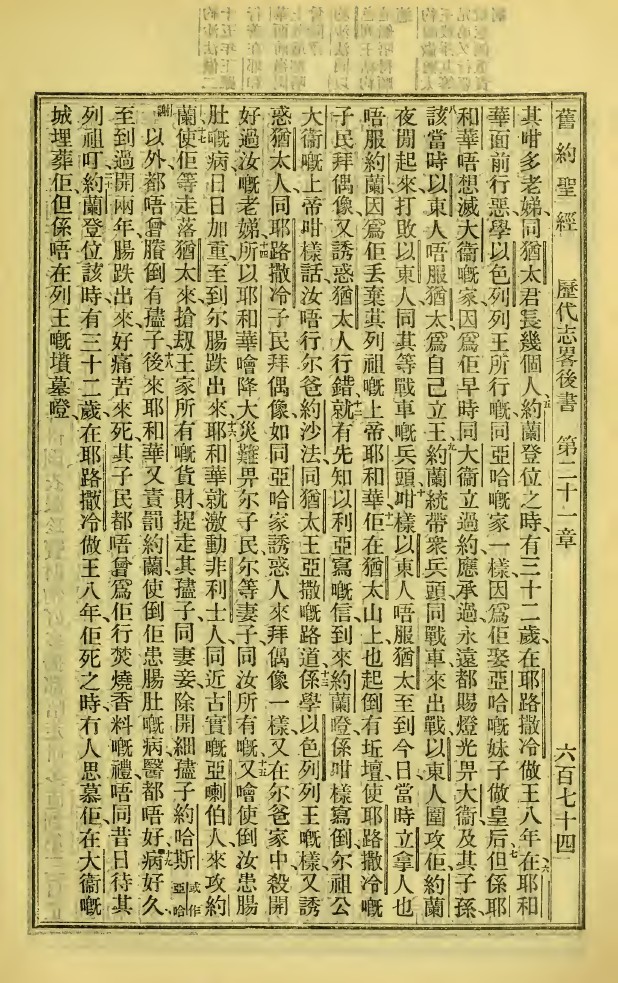 舊約聖經 歷代志畧後書 第二十一章 六百七十四
其咁多老娣同猶太君長幾個人五約蘭登位之時有三十二歲在耶路撒冷做王八年六在耶和
華面前行惡學以色列列王所行嘅同亞哈嘅家一樣因爲佢娶亞哈嘅妹子做皇后但係七耶
和華唔想滅大衞嘅家因爲佢早時同大衞立過約應承過永遠都賜燈光畀大衞及其子孫
八該當時以東人唔服猶太爲自己立王九約蘭統帶衆兵頭同戰車來出戰以東人圍攻佢約蘭
夜間起來打敗以東人同其等戰車嘅兵頭十咁樣以東人唔服猶太至到今日當時立拿人也
唔服約蘭因爲佢丢棄其列祖嘅上帝耶和華十一佢在猶太山上也起倒有坵壇使耶路撒冷嘅
子民拜偶像又誘惑猶太人行錯十二就有先知以利亞寫嘅信到來約蘭噔係咁樣寫倒尔祖公
大衞嘅上帝咁樣話汝唔行尔爸約沙法同猶太王亞撒嘅路道十三係學以色列列王嘅樣又誘
惑猶太人同耶路撒冷子民拜偶像如同亞哈家誘惑人來拜偶像一樣又在尔爸家中殺開
好過汝嘅老娣十四所以耶和華噲降大災難畀尔子民尔等妻子同汝所有嘅十五又噲使倒汝患腸
肚嘅病日日加重至到尔腸跌出來十六耶和華就激動非利士人同近古實嘅亞喇伯人來攻約
蘭十七使佢等走落猶太來搶刼王家所有嘅貨財捉走其孻子同妻妾除開細孻子約哈斯或作亞哈
謝以外都唔曾賸倒有孻子十八後來耶和華又責罰約蘭使倒佢患腸肚嘅病醫都唔好十九病好久
至到過開兩年腸跌出來好痛苦來死其子民都唔曾爲佢行焚燒香料嘅禮唔同昔日待其
列祖叮二十約蘭登位該時有三十二歲在耶路撒冷做王八年佢死之時冇人思慕佢在大衞嘅
城埋葬佢但係唔在列王嘅墳墓噔